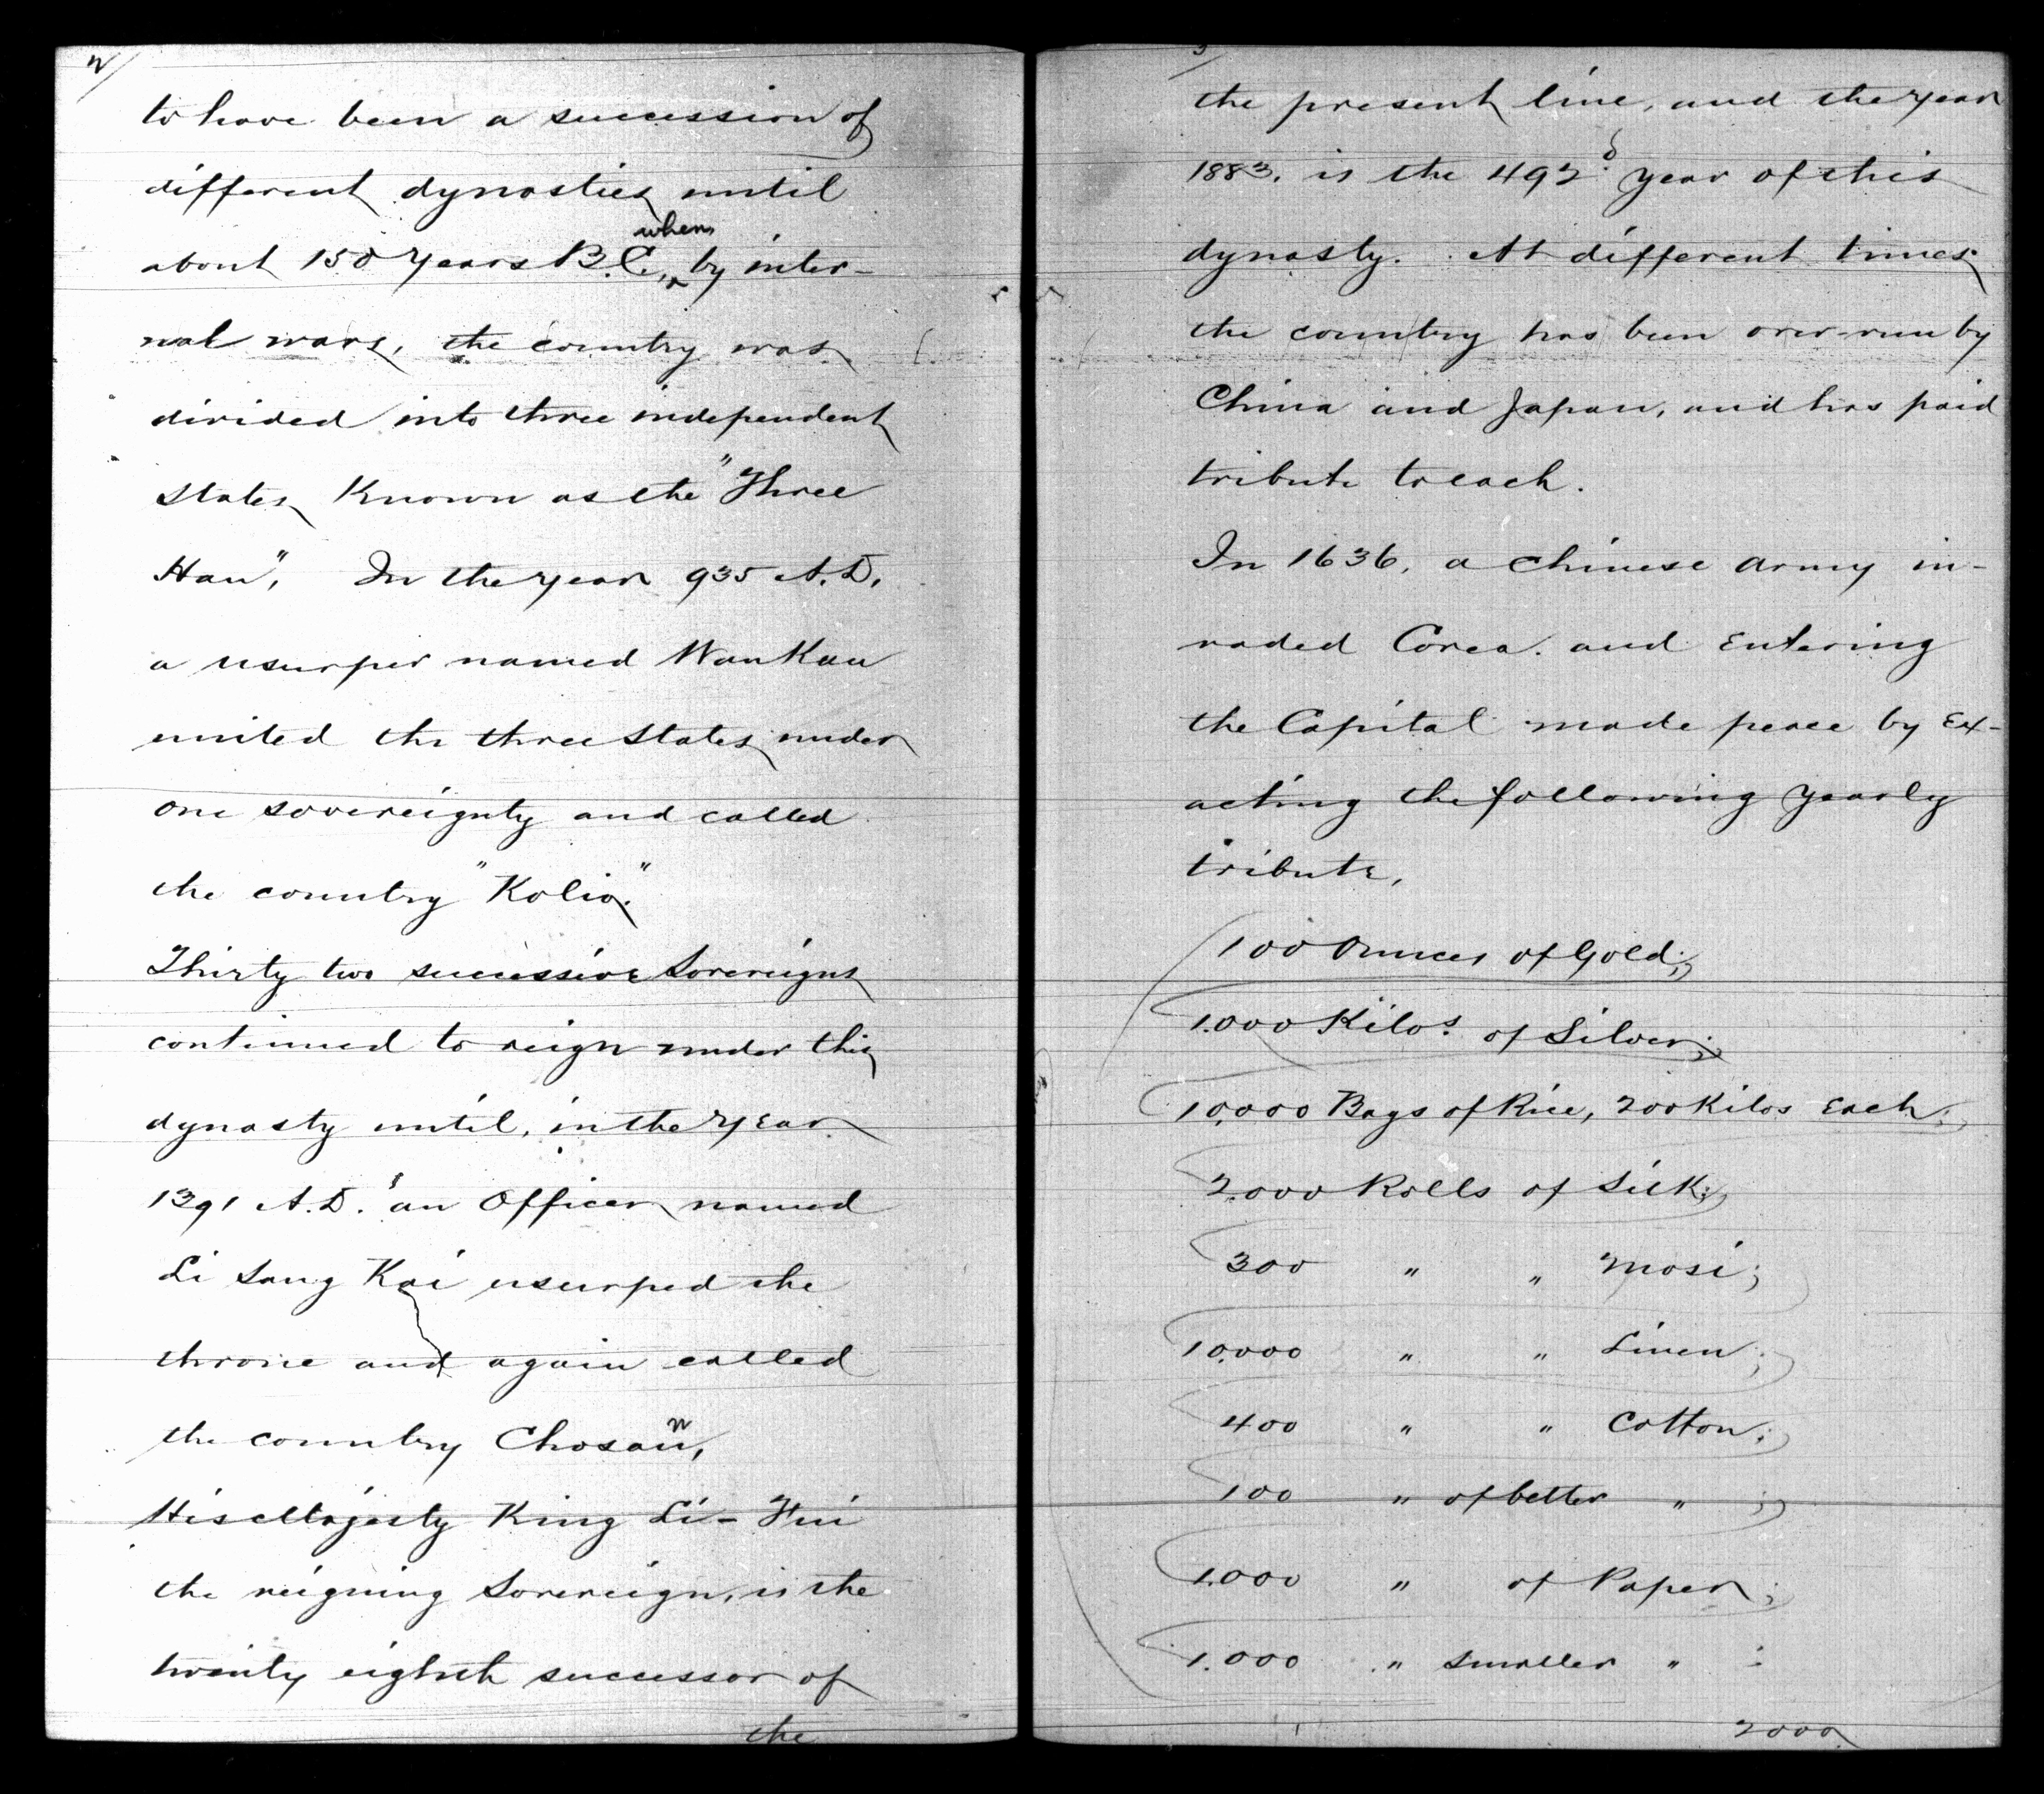 2/
to have been a succession of
different dynasties until
about 150 years B.C., when by inter-
nal wars, the country was
divided into three independent
States Known as the "Three
Han", In the year 935 A.D.
a usurper named Wan Kan
united the three States under
one sovereignty and called
the country "Kolio."
Thirty two successive Sovereigns
continued to reign under this
dynasty until, in the year
1391 A.D. an Officer named
Li Sang Kai usurped the
throne and again called
the country Chosan,
His Majesty King Li-Hui
the reigning Sovereign, is the
twenty eighth successor of
the
3/
the present line, and the year
1883, is the 492d year of this
dynasty. At different times
the country has been over-run by
China and Japan, and has paid
tribute to each.
In 1636, a Chinese army in-
vaded Corea. and Entering
the Capital made peace by Ex-
acting the following yearly
tribute,
100 Ounces of Gold;
1.000 Kilos of Silver;
10.000 Bags of Rice, 200 Kilos Each;
2.000 Rolls of Silk;
300 " " Mosi;
10.000 " " Linen;
400 " " Cotton;
100 " of better " ;
1.000 " of Paper;
1.000 " smaller " :
2000